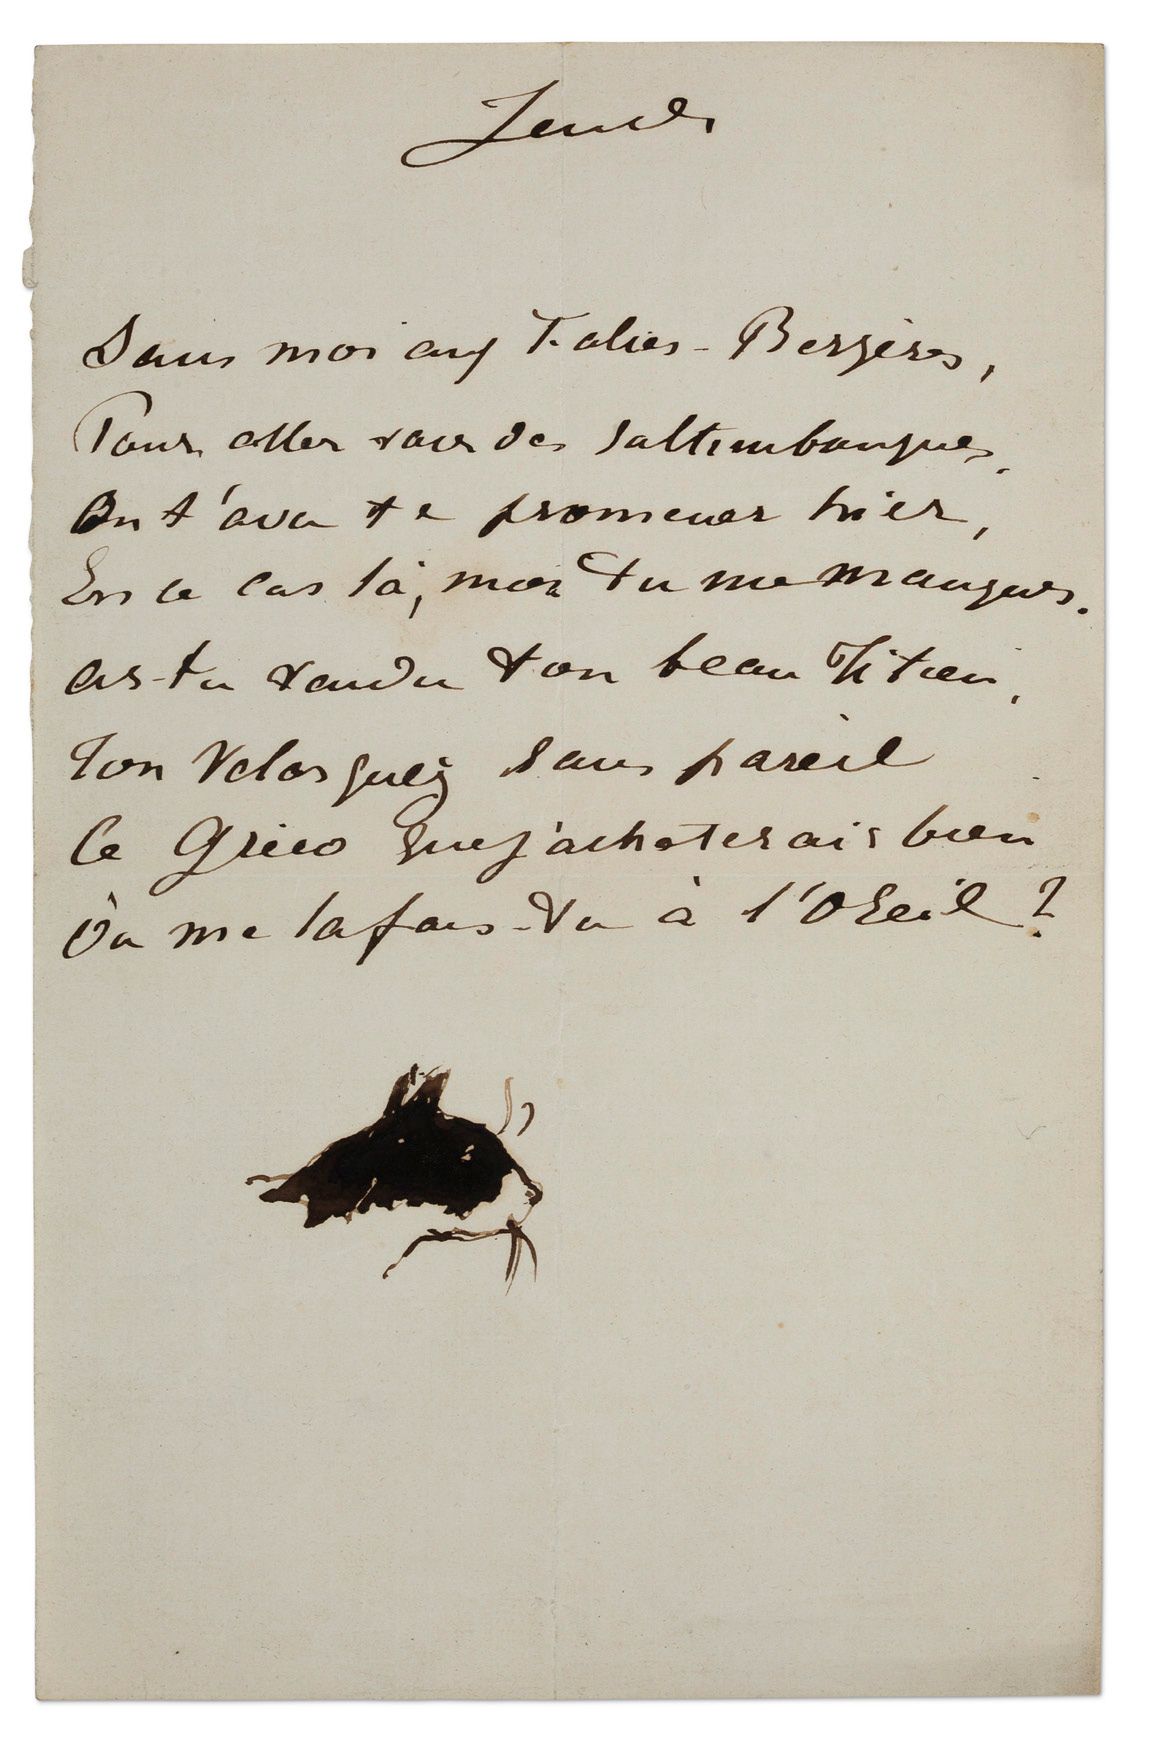 Jeudi
Sans moi aux Folies-Bergères,
Pour aller voir des saltimbanques.
On t'a vu te promener hier,
En ce cas là, moi tu me manques.
as-tu vendu ton beau Titien,
Ton Velasquez sans pareil
Ce Gréco que j'achèterais bien
Ou me la fais-tu à l'Oseil ?